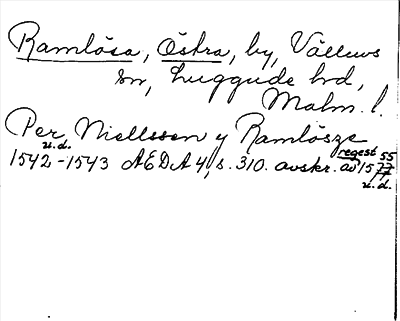 Ramlösa, Östra, by, Välluvs
sn, Luggude hd,
Malm. l.
Per Niellssen y Ramlösze
u.d. regest 55
1542-1543 AEDA 4, s. 310. avskr. av 1577
u.d.